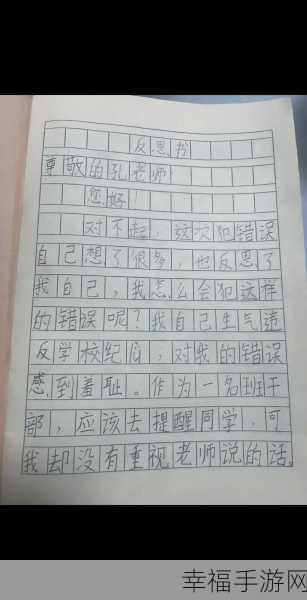 反思书
尊敬的孔老师
您好!
对不起,这次犯错误
自己想了很多,也反思了
我自己,我怎么会犯这样
的错误呢?我自己生气违
反学校纪律,对我的错误
感到羞耻。作为一名班干
部,应该去提醒同学,可
我却没有重视老师说的话。
幸福手游网